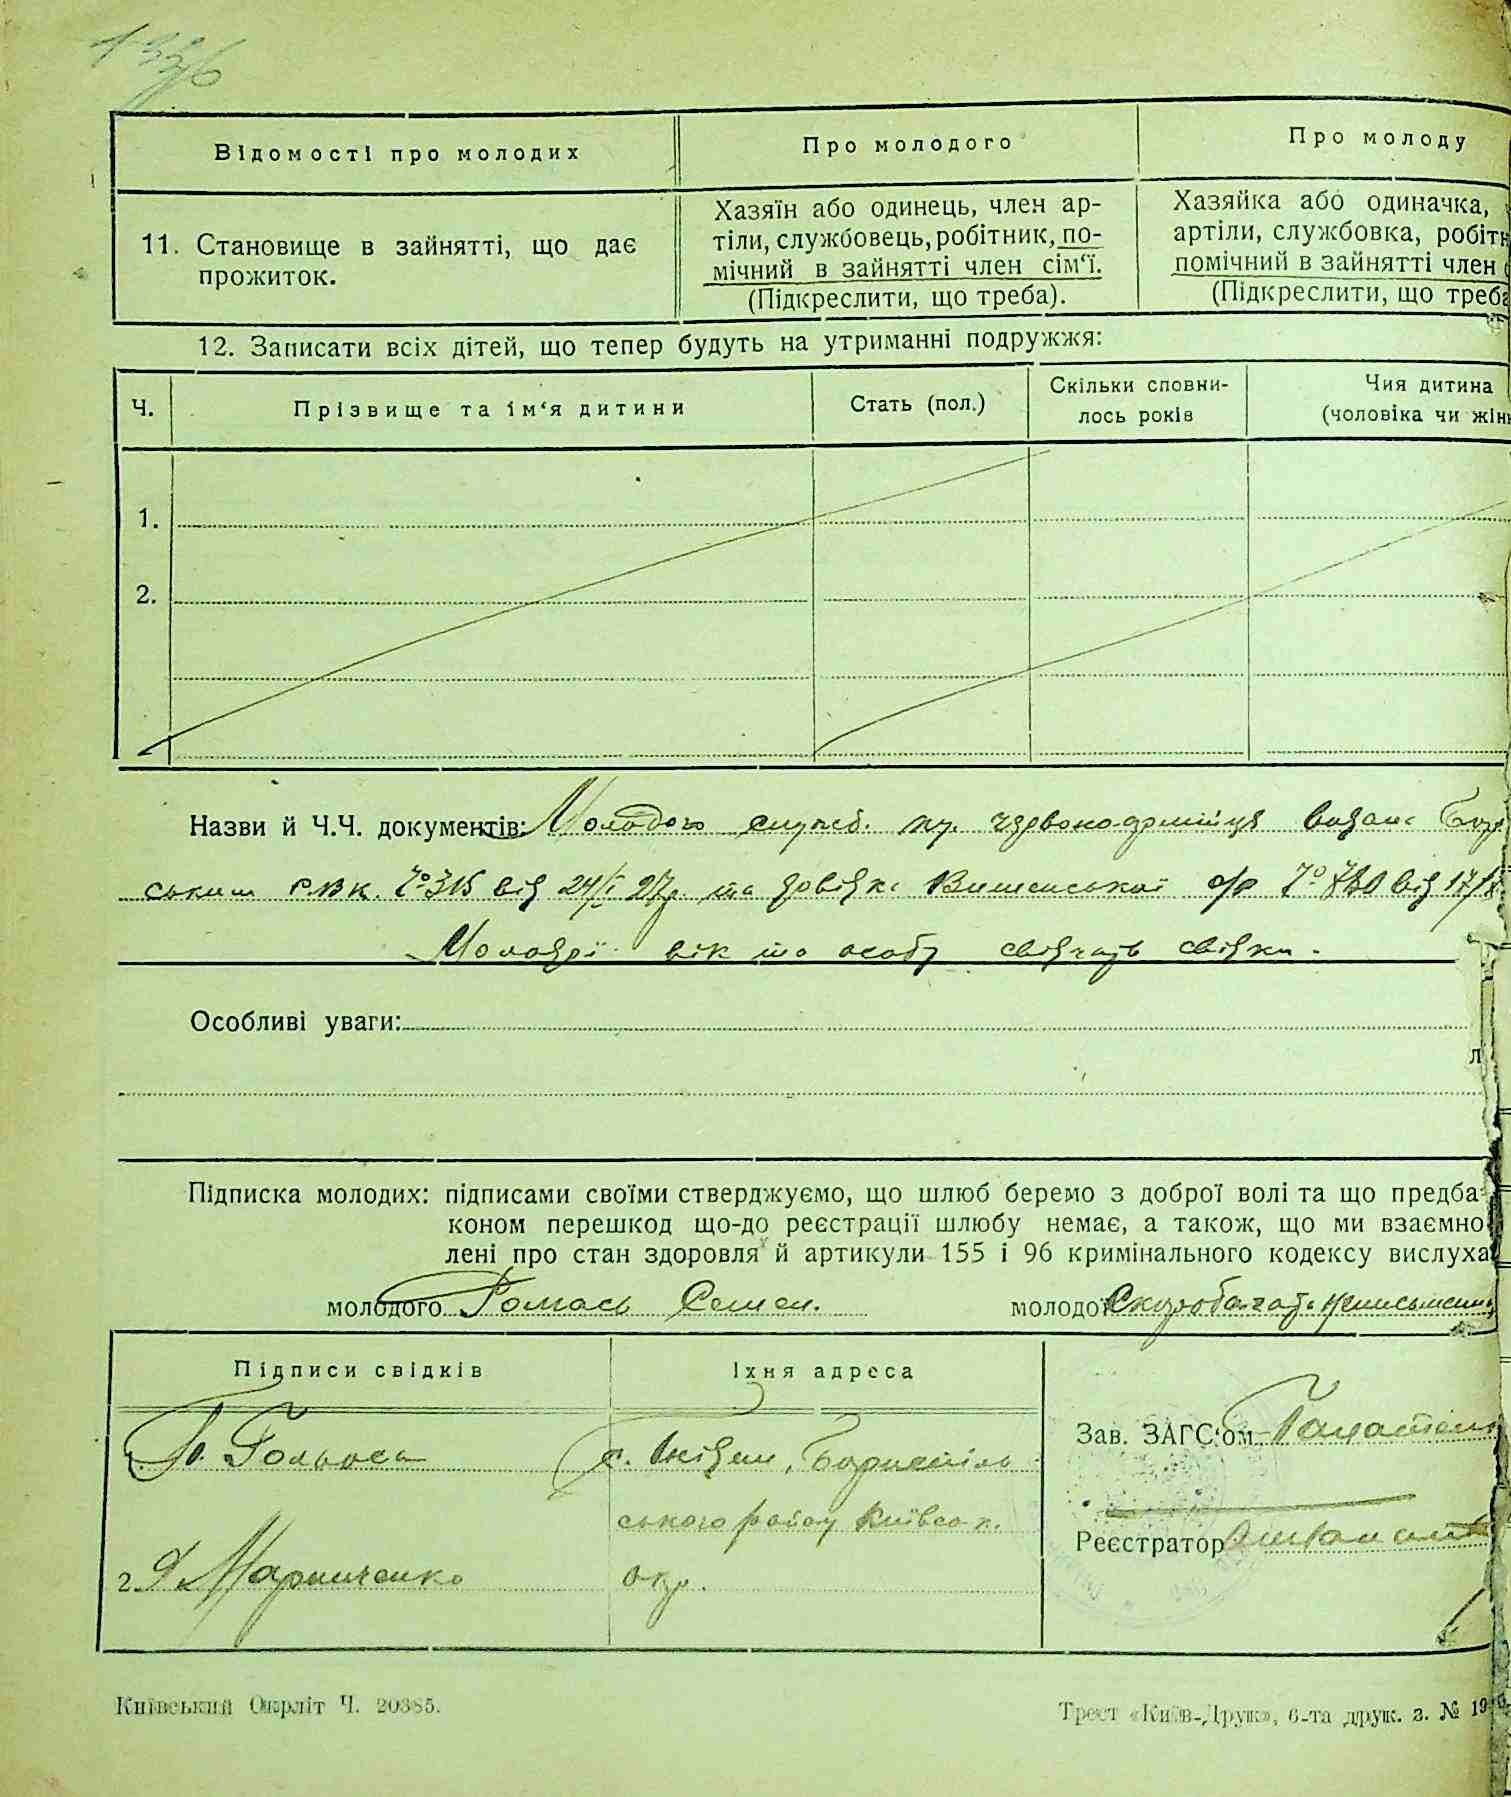 1336
Відомості про молодих
Про молодого
Про молоду
11. Становище в зайнятті, що дає
прожиток.
Хазяїн або одинець, член ар-
тіли, службовець, робітник, по-
мічний в зайнятті член сім‘ї.
(Підкреслити, що треба).
Хазяйка або одиначка,
артіли, службовка, робітн
помічний в зайнятті член
(Підкреслити, що треба
12. Записати всіх дітей, що тепер будуть на утриманні подружжя:
Ч.
Прізвище та ім‘я дитини
Стать (пол.)
Скільки сповни-
лось років
Чия дитина
(чоловіка чи жінк
1.
2.
Назви й Ч.Ч. документів: Молодого служб. кн. червоноармійця видана Бор
ським РВК. № 315 від 24/I 27р. та довідка від 17/
Молодої вік та особу свідчать свідки.
Особливі уваги:
л
Підписка молодих: підписами своїми стверджуємо, що шлюб беремо з доброї волі та що предба
коном перешкод що-до реєстрації шлюбу немає, а також, що ми взаємно
лені про стан здоровля й артикули 155 і 96 кримінального кодексу вислуха
молодого Ромась Семен.
молодої Скоробагата неписьменна
Підписи свідків
Їхня адреса
Зав. ЗАГС‘ом
с. Бориспіль
ського району Київськ.
Реєстратор
2. Я Марченко
окр.
Київський Окрліт Ч. 20385.
Трест «Київ-Друк», 6-та друк. з. № 19